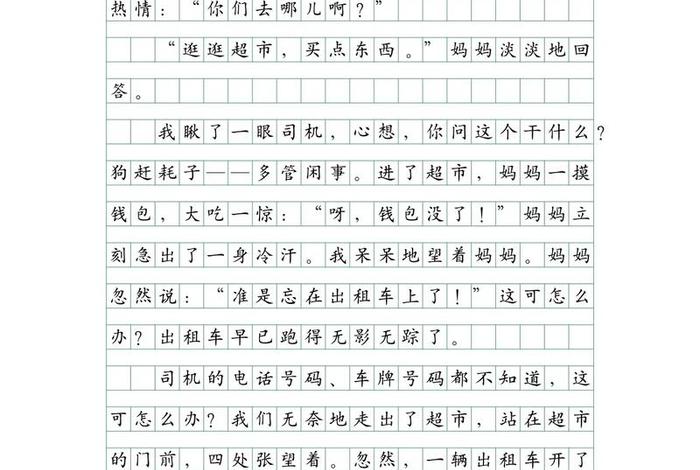 热情：“你们去哪儿啊？”
“逛逛超市，买点东西。”妈妈淡淡地回
答。
我瞅了一眼司机，心想，你问这个干什么？
狗赶耗子——多管闲事。进了超市，妈妈一摸
钱包，大吃一惊：“呀，钱包没了！”妈妈立
刻急出了一身冷汗。我呆呆地望着妈妈。妈妈
忽然说：“准是忘在出租车上了！”这可怎么
办？出租车早已跑得无影无踪了。
司机的电话号码、车牌号码都不知道，这
可怎么办？我们无奈地走出了超市，站在超市
的门前，四处张望着。忽然，一辆出租车开了